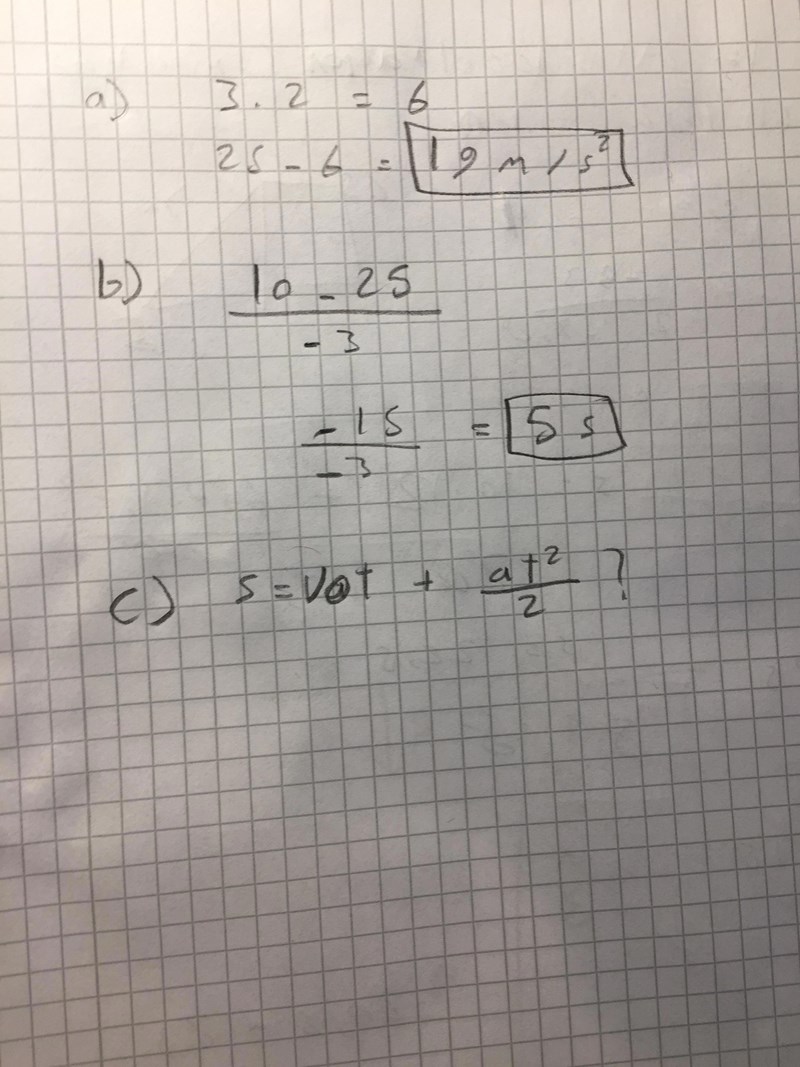 a) 3 . 2 = 6
25 - 6 = 19 m/s²
b) 10 - 25
- 3
-15 = 5 s
-3
c) s = v0t + at² ?
2